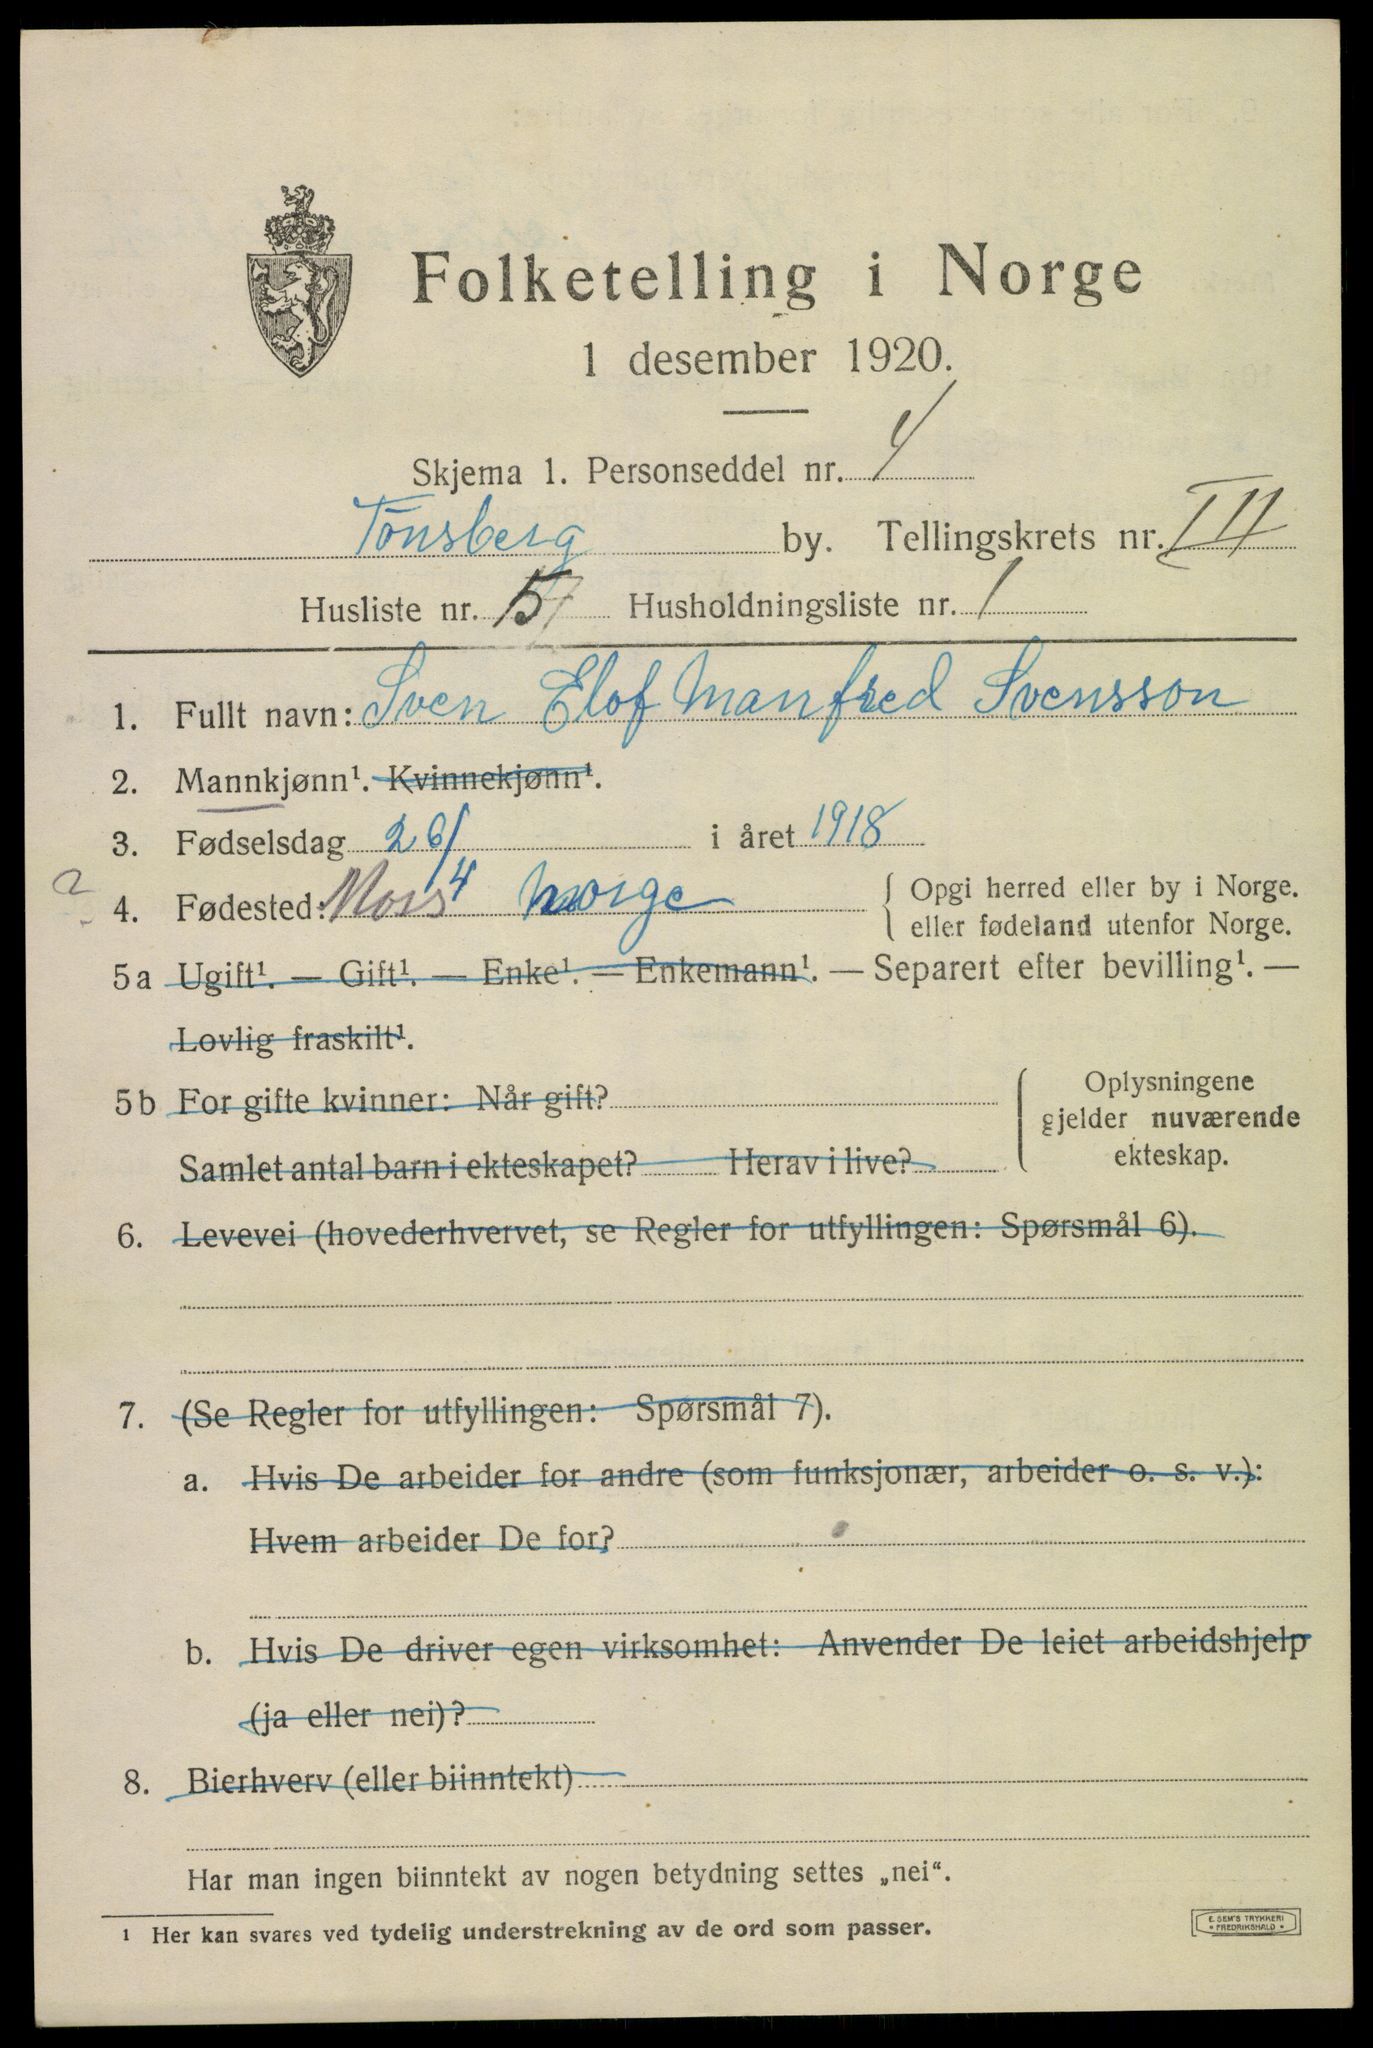 Folketelling i Norge
1 desember 1920.
Skjema 1. Personseddel nr. 4
Tönsberg by. Tellingskrets nr. III
Husliste nr. 57 Husholdningsliste nr. 1
1. Fullt navn: Sven Elof Manfred Svensson
2. Mannkjønn¹. Kvinnekjønn¹.
3. Fødselsdag 26/4 i året 1918
4. Fødested: Moss Norge { Opgi herred eller by i Norge.
eller fødeland utenfor Norge.
5a Ugift¹. — Gift¹. — Enke¹. — Enkemann¹. — Separert efter bevilling¹. —
Lovlig fraskilt¹.
5b For gifte kvinner: Når gift?
Samlet antal barn i ekteskapet? Herav i live?
Oplysningene
gjelder nuværende
ekteskap.
6. Levevei (hovederhvervet, se Regler for utfyllingen: Spørsmål 6).
7. (Se Regler for utfyllingen: Spørsmål 7).
a. Hvis De arbeider for andre (som funksjonær, arbeider o. s. v.):
Hvem arbeider De for?
b. Hvis De driver egen virksomhet: Anvender De leiet arbeidshjelp
(ja eller nei)?
8. Bierhverv (eller biinntekt)
Har man ingen biinntekt av nogen betydning settes „nei“.
¹ Her kan svares ved tydelig understrekning av de ord som passer.
E. SEM'S TRYKKERI
• FREDRIKSHALD •